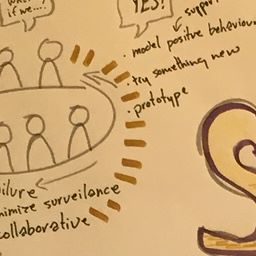 what
if we...?
YES!
support
• model positive behaviou
• try something new
• prototype
ilure
nimize surveilance
collaborative
S